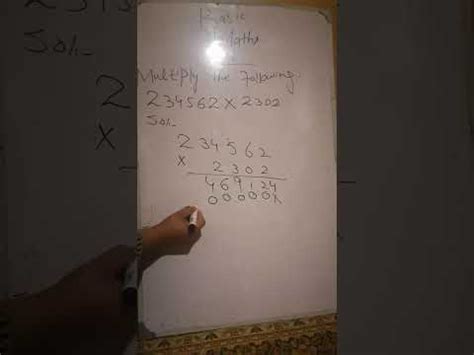 Basic
Maths
Multiply the following
234562 x 2302
Sol.
234562
x 2302
469124
00000x